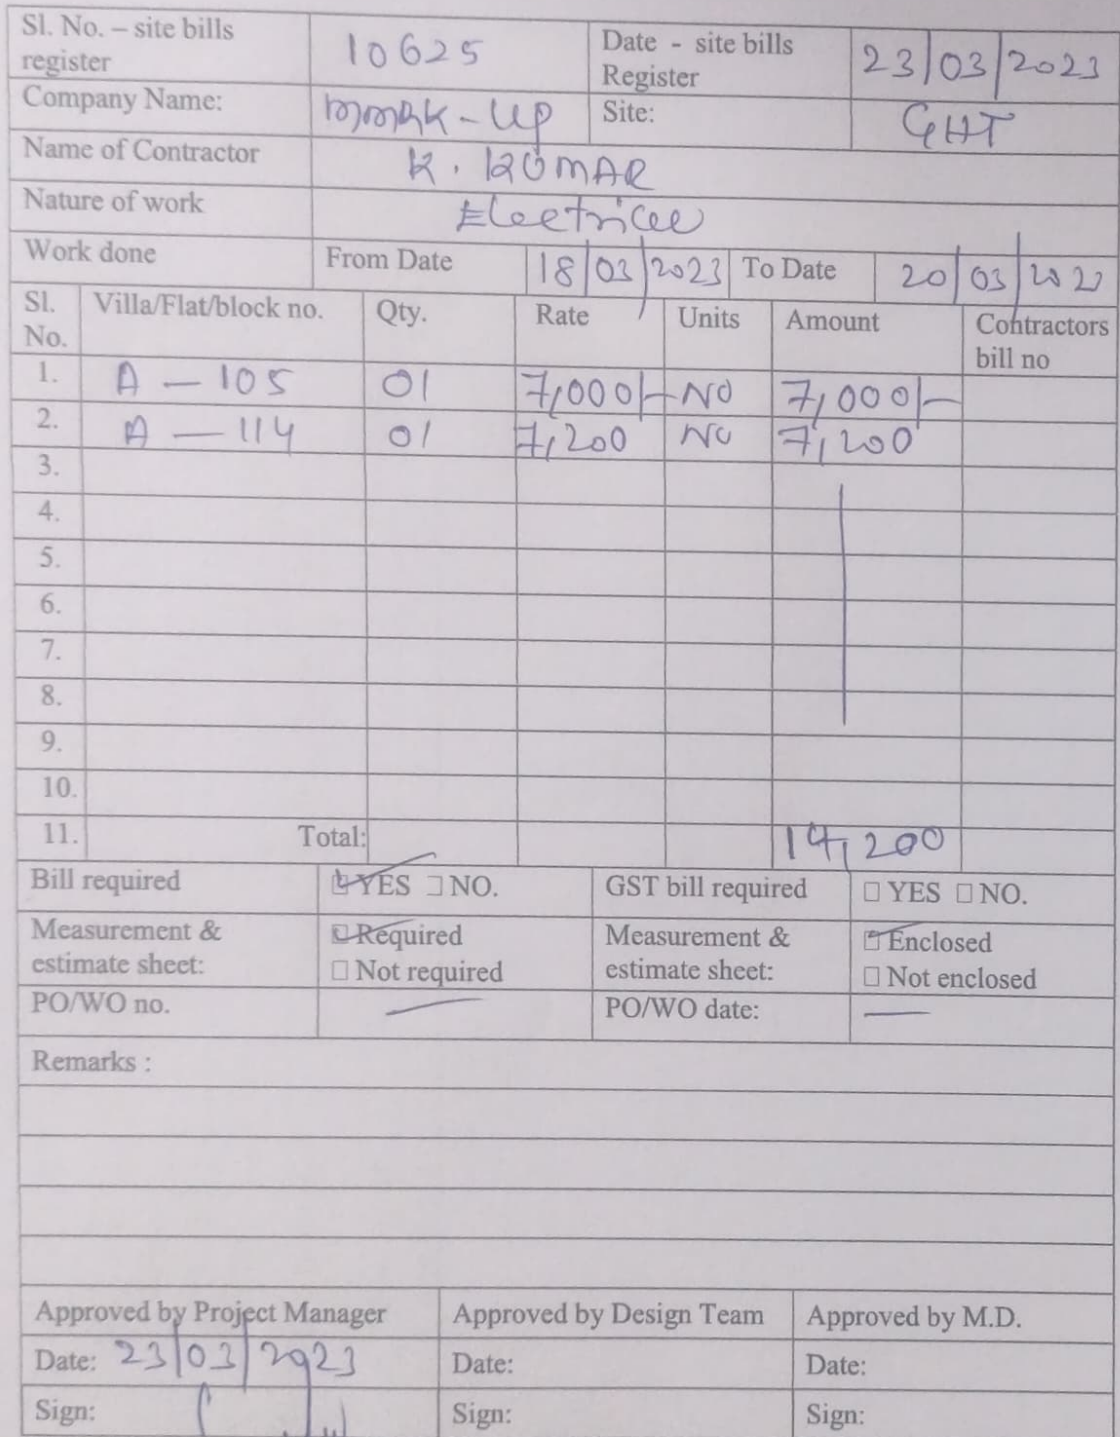 Sl. No. – site bills register 10625 Date - site bills Register 23/03/2023
Company Name: Site: GHT
Name of Contractor K. KUMAR
Nature of work
Work done From Date 18/03/2023 To Date 20/03/2023
Sl. No. Villa/Flat/block no. Qty. Rate Units Amount Contractors bill no
1. A – 105 01 7,000/- NO 7,000/-
2. A – 114 01 7,200 NO 7,200
3.
4.
5.
6.
7.
8.
9.
10.
11. Total: 14,200
Bill required YES NO. GST bill required YES NO.
Measurement & estimate sheet: Required Measurement & estimate sheet: Enclosed
Not required Not enclosed
PO/WO no. — PO/WO date: —
Remarks :
Approved by Project Manager Approved by Design Team Approved by M.D.
Date: 23/03/2023 Date: Date:
Sign: Sign: Sign: